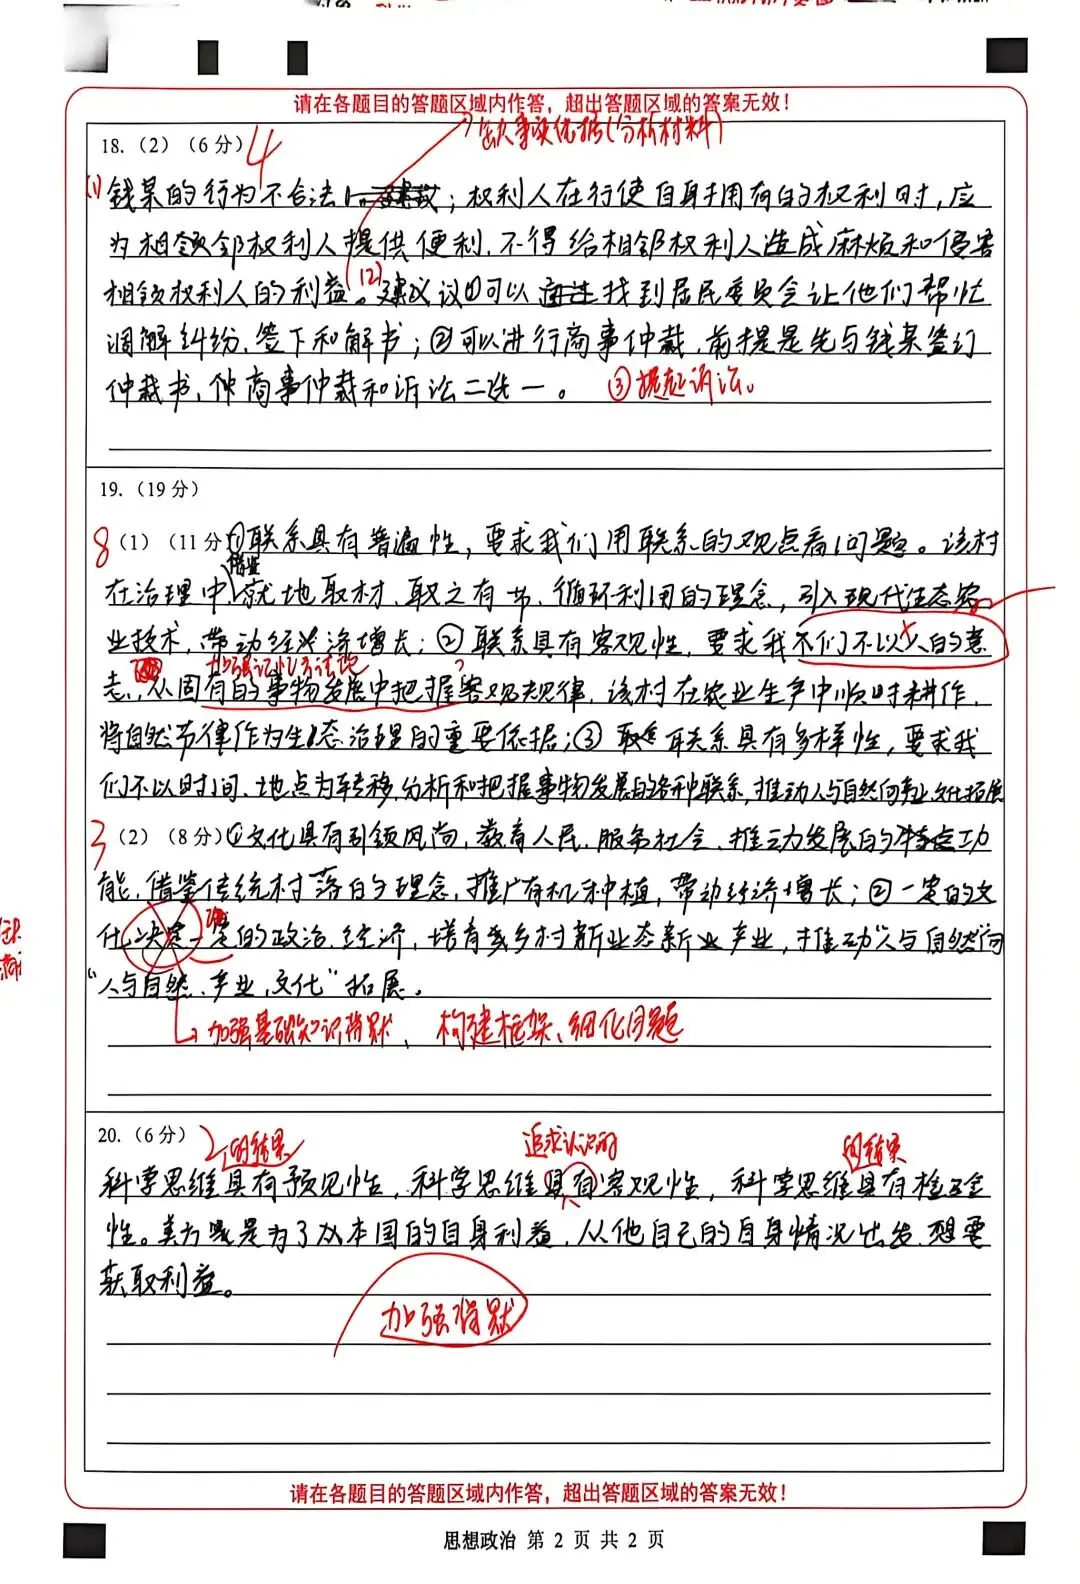 请在各题目的答题区域内作答，超出答题区域的答案无效！
缺事实依据(分析材料)
18.（2）（6分） 4
(1) 钱某的行为不合法；权利人在行使自身拥有的权利时，应
为相领邻权利人提供便利，不得给相邻权利人造成麻烦和侵害
相领权利人的利益。(12)建议议①可以通过找到居民委员会让他们帮忙
调解纠纷，签下和解书；②可以进行商事仲裁，前提是先与钱某签订
仲裁书，仲商事仲裁和诉讼二选一。 ③提起诉讼。
19.（19分）
8（1）（11分）①联系具有普遍性，要求我们用联系的观点看问题。该村
在治理中借鉴就地取材、取之有节、循环利用的理念，引入现代生态农
业技术，带动经济增长；②联系具有客观性，要求我不们不以人的意
加强记忆方法论
志，从固有的事物发展中把握客观规律，该村在农业生产中顺时耕作，
将自然节律作为生态治理的重要依据；③联系具有多样性，要求我
们不以时间、地点为转移，分析和把握事物发展的各种联系，推动人与自然向产业、文化拓展
3（2）（8分）①文化具有引领风尚、教育人民、服务社会、推动发展的特定功
能，借鉴传统村落的理念，推广有机种植，带动经济增长；②一定的文
化决定一定的政治、经济，培育乡村新业态新产业，推动“人与自然向
“人与自然、产业、文化”拓展。
加强基础知识背默、构建框架、细化问题
20.（6分） 2 的结果 追求认识的 的结果
科学思维具有预见性，科学思维具有客观性，科学思维具有检验
性。美方是为了从本国的自身利益，从他自己的自身情况出发，想要
获取利益。
加强背默
请在各题目的答题区域内作答，超出答题区域的答案无效！
思想政治 第 2 页 共 2 页